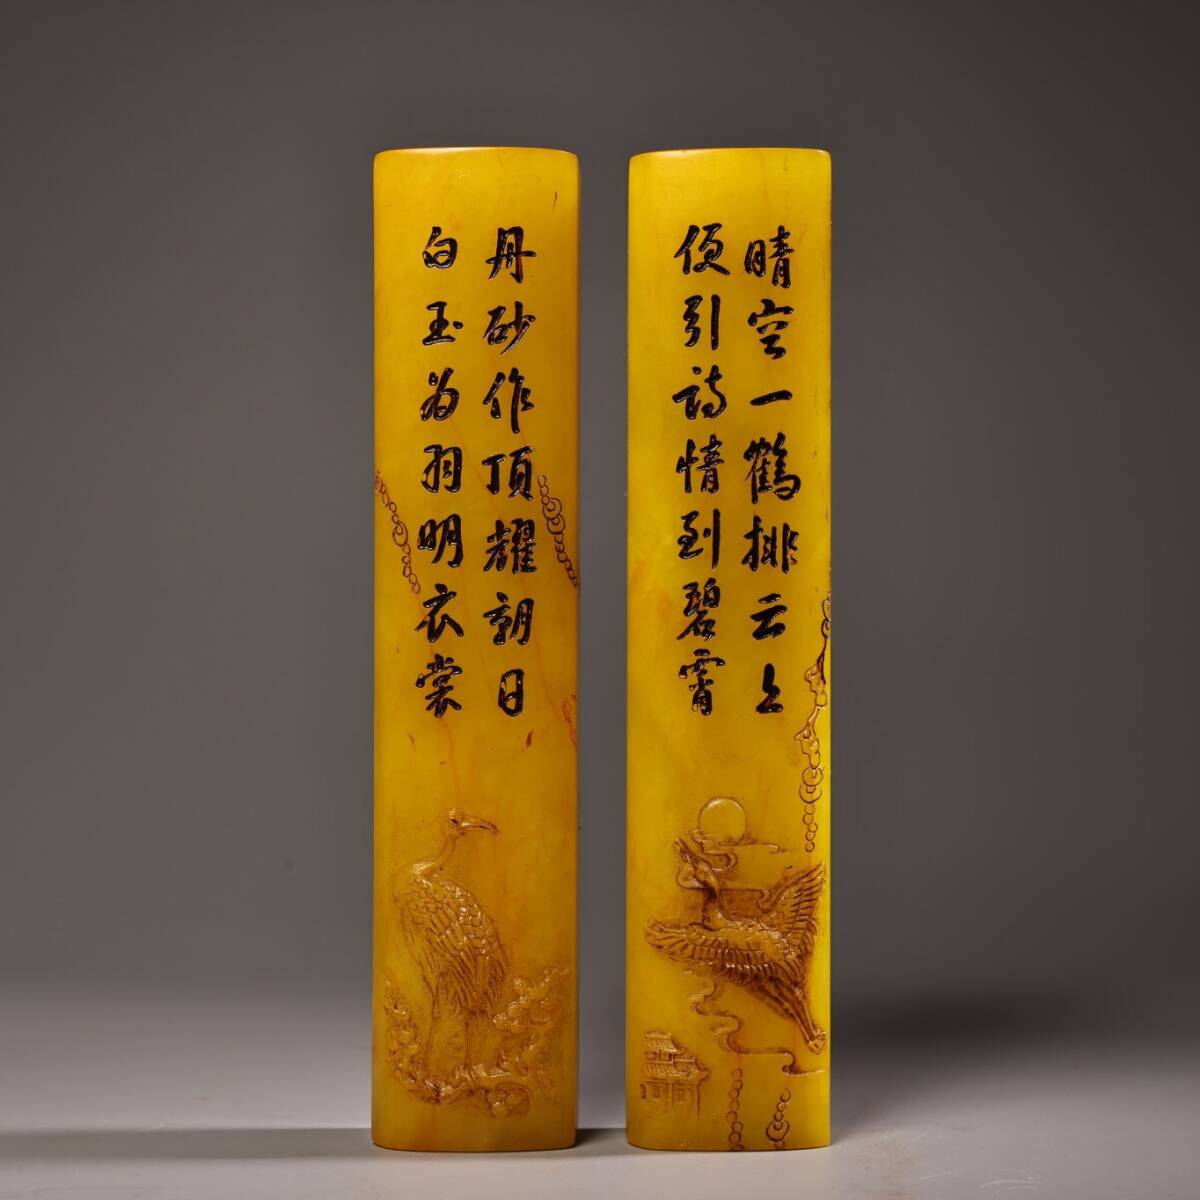 晴空一鹤排云上
便引诗情到碧霄
丹砂作顶耀朝日
白玉为羽明衣裳